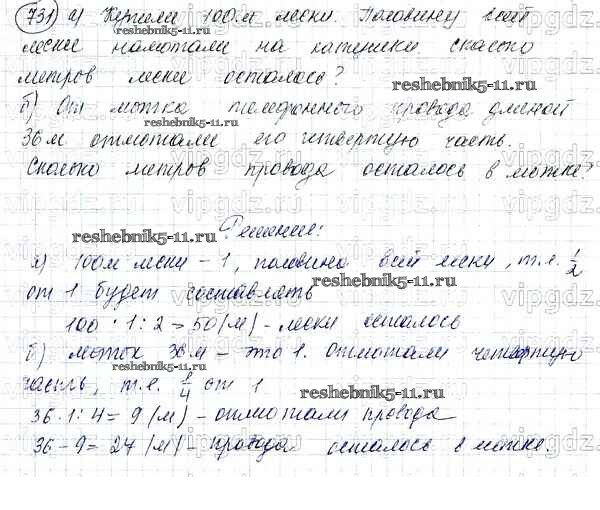 731 а) Купили 100м лески. Половину всей
лески намотали на катушки. Сколько
метров лески осталось?
б) От мотка телефонного провода длиной
36м отмотали его четвертую часть.
Сколько метров провода осталось в мотке?
Решение:
а) 100м лески – 1, половина всей лески, т.е. 1/2
от 1 будет составлять
100 · 1 : 2 = 50 (м) – лески осталось
б) моток 36м – это 1. Отмотали четвертую
часть, т.е. 1/4 от 1
36 · 1 : 4 = 9 (м) – отмотали провода
36 – 9 = 27 (м) – провода осталось в мотке.
reshebnik5-11.ru
reshebnik5-11.ru
reshebnik5-11.ru
reshebnik5-11.ru
reshebnik5-11.ru
vipgdz